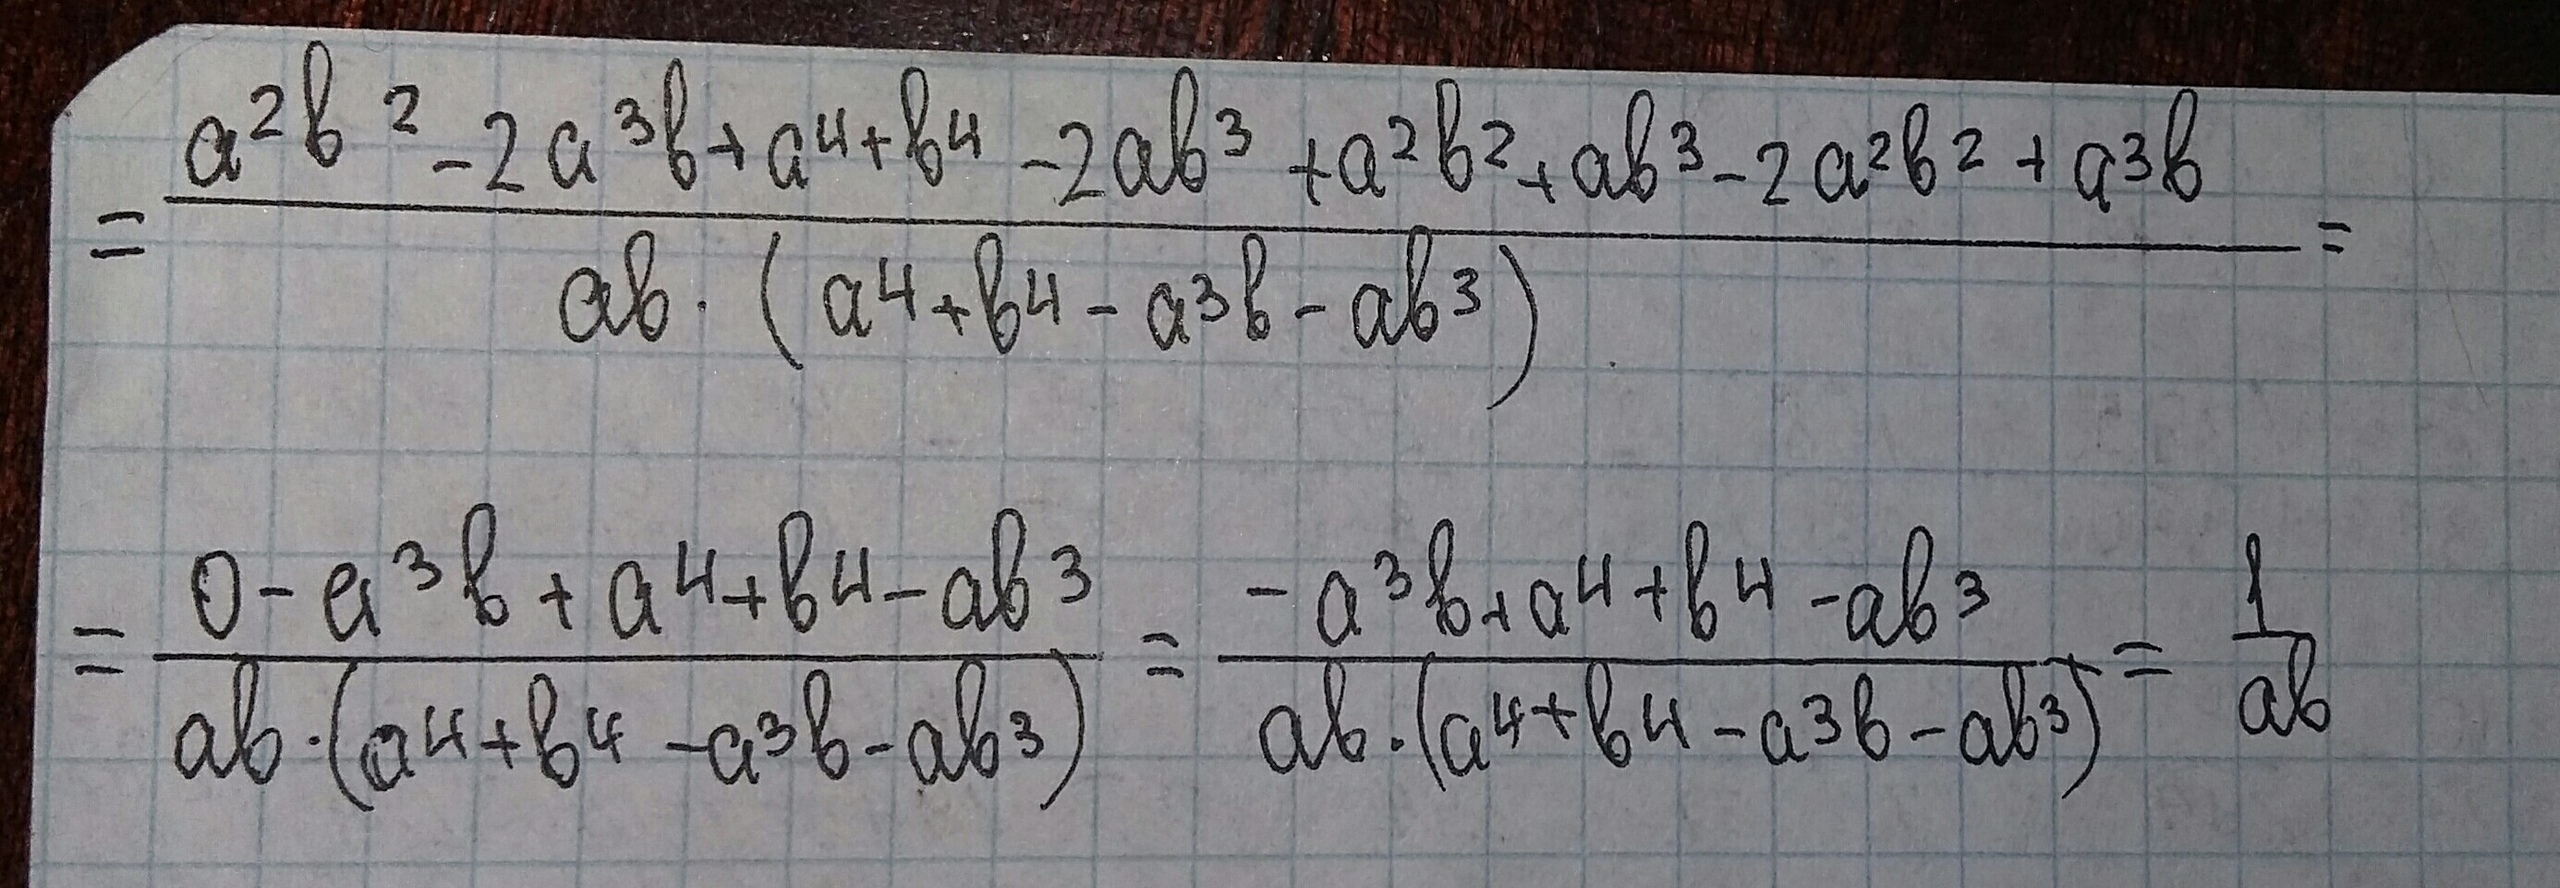 = a²b² - 2a³b + a⁴ + b⁴ - 2ab³ + a²b² + ab³ - 2a²b² + a³b =
ab · (a⁴ + b⁴ - a³b - ab³)
= 0 - a³b + a⁴ + b⁴ - ab³ = - a³b + a⁴ + b⁴ - ab³ = 1
ab · (a⁴ + b⁴ - a³b - ab³) ab · (a⁴ + b⁴ - a³b - ab³) ab